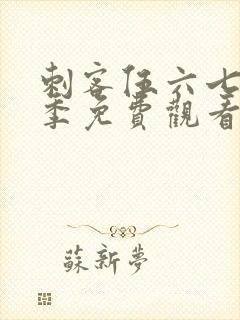 刺客伍六七
季免費觀看
蘇新夢